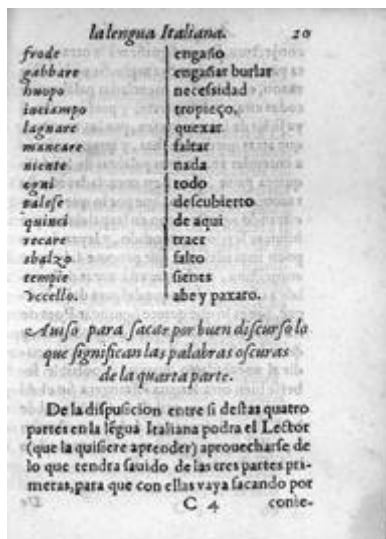 la lengua Italiana. 20
frode engaño
gabbare engañar burlar
huopo necessidad
inciampo tropieço.
lagnare quexar
mancare faltar
niente nada
ogni todo
palese descubierto
quinci de aqui
recare traer
sbalzo salto
tempie sienes
Vccello. abe y paxaro.
Auiso para sacar por buen discurso lo
que significan las palabras oscuras
de la quarta parte.
De la dispusicion entre si destas quatro
partes en la lẽgua Italiana podra el Lector
(que la quisiere aprender) aprouecharse de
lo que tendra sauido de las tres partes pri-
meras, para que con ellas vaya sacando por
C 4 conie-